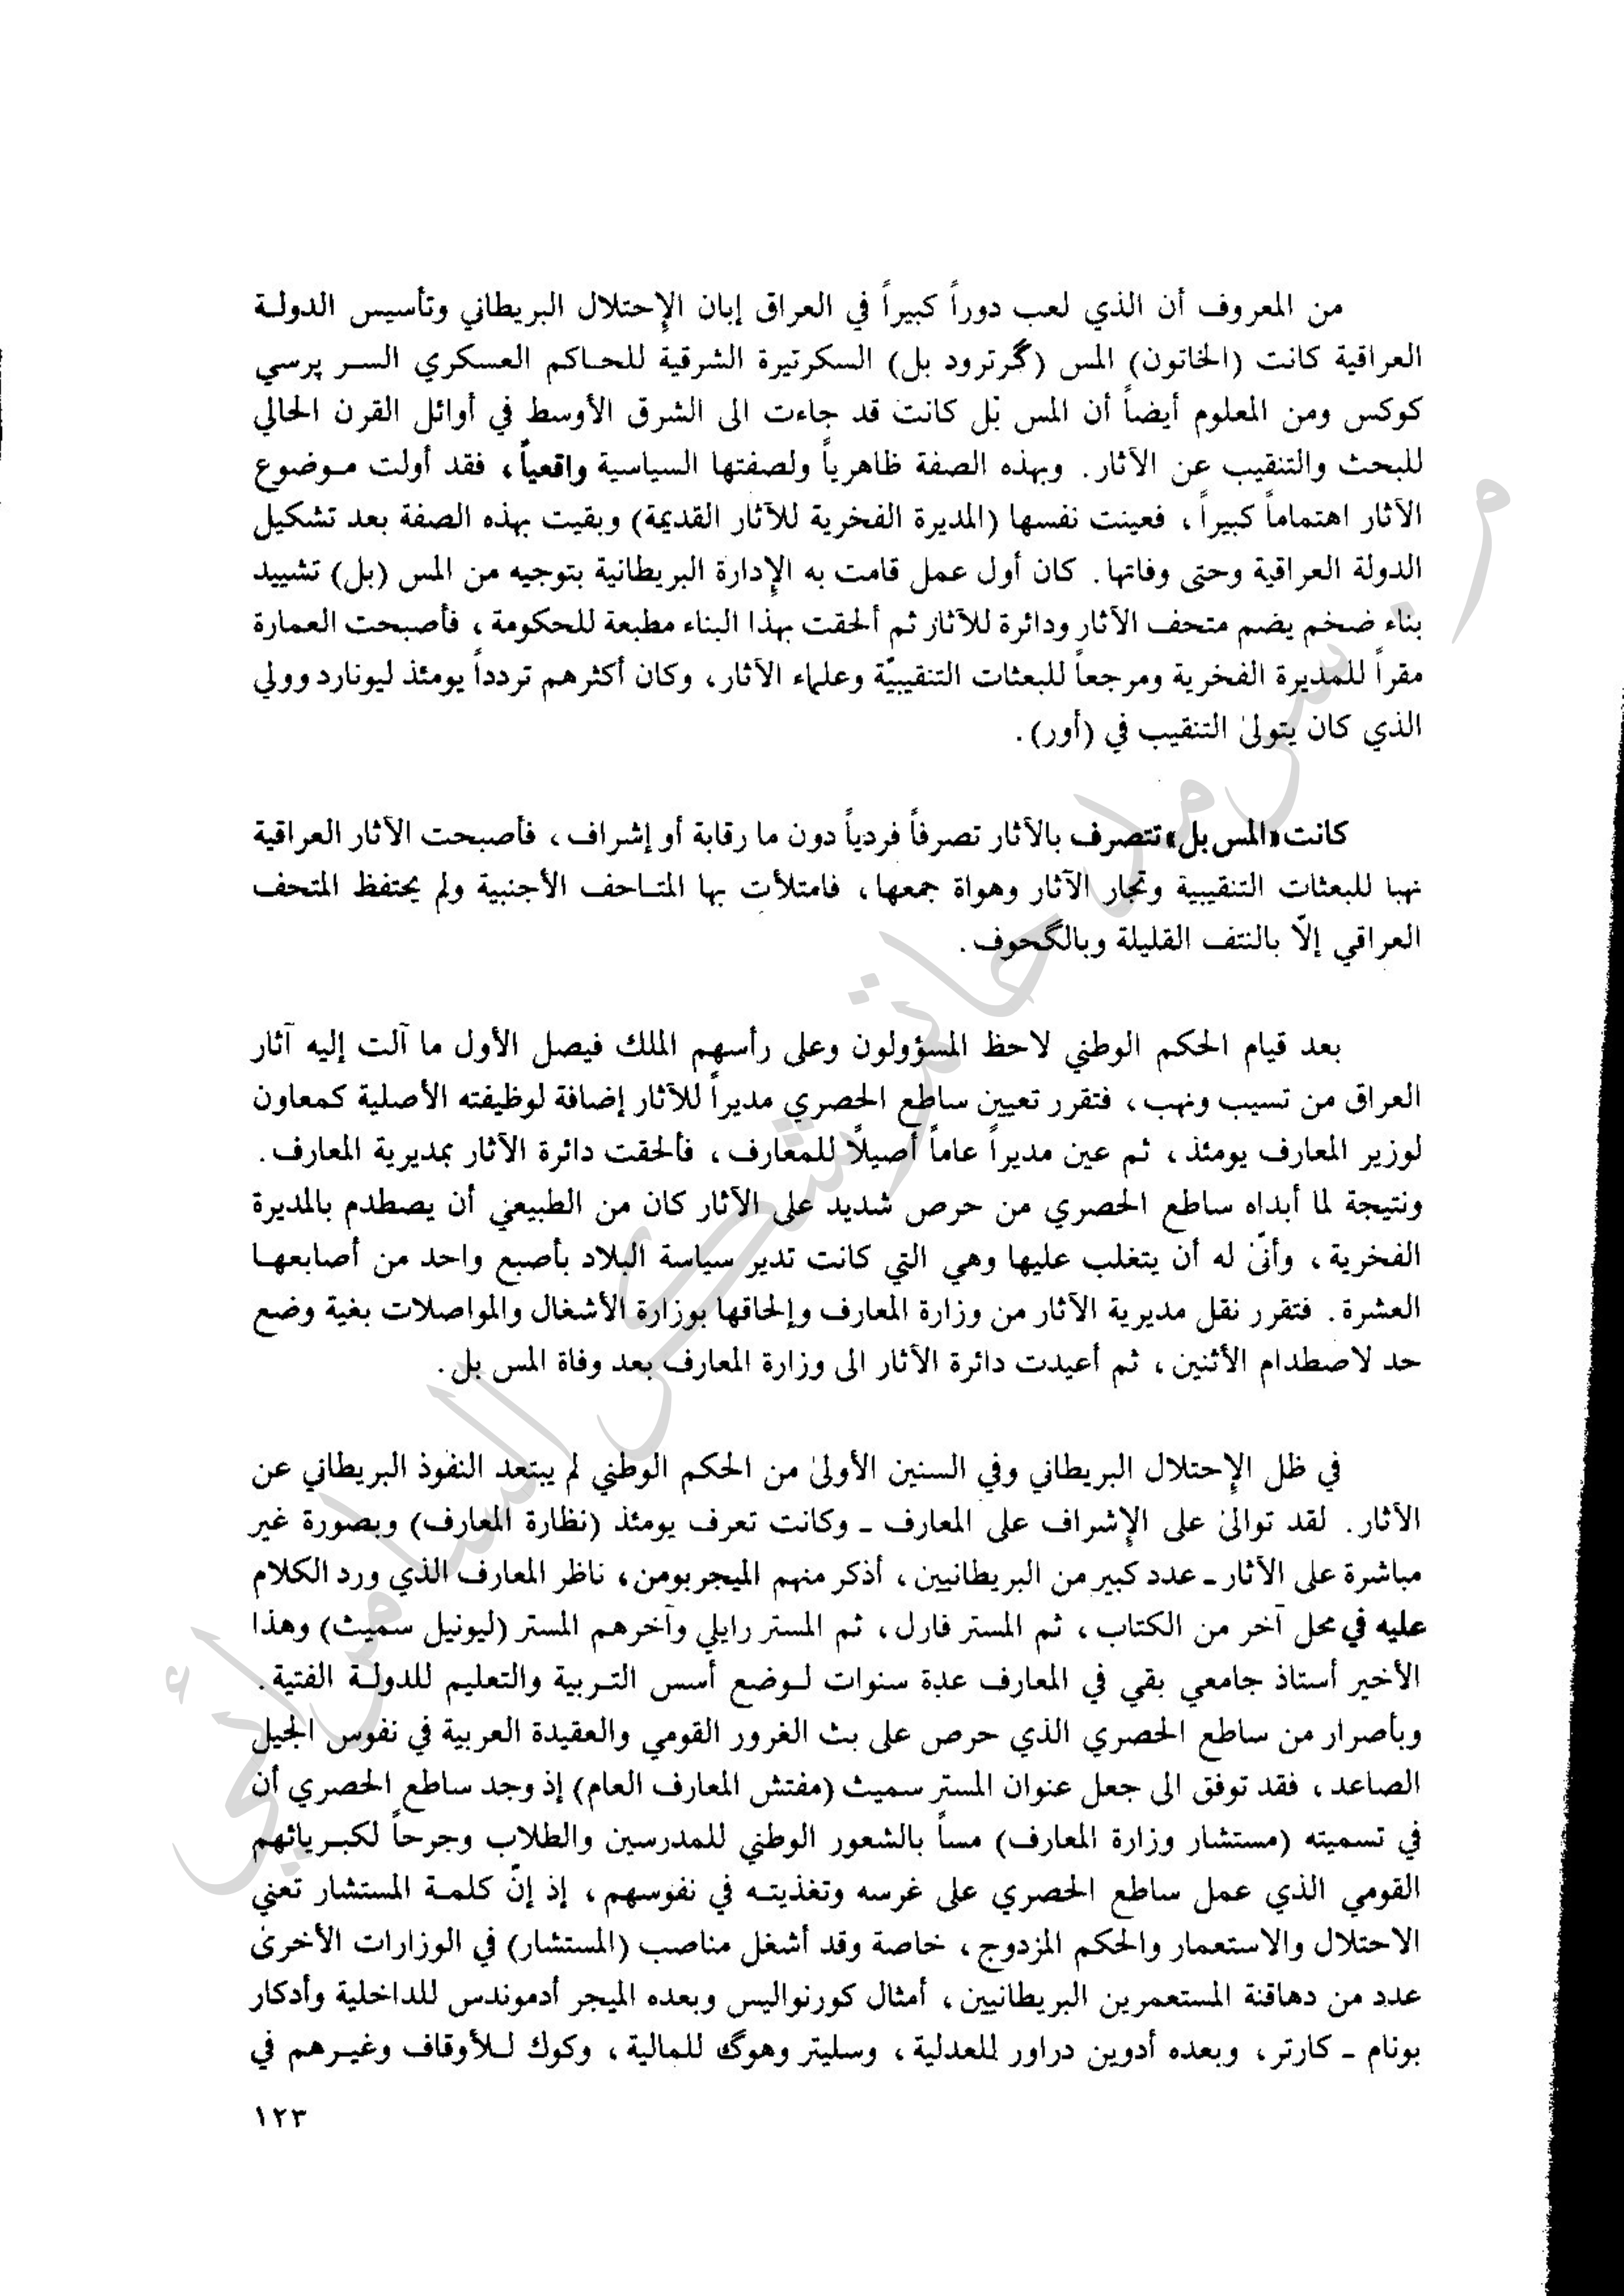 من المعروف أن الذي لعب دوراً كبيراً في العراق إبان الإحتلال البريطاني وتأسيس الدولة
العراقية كانت (الخاتون) المس (گرترود بل) السكرتيرة الشرقية للحاكم العسكري السر پرسي
كوكس ومن المعلوم أيضاً أن المس بل كانت قد جاءت الى الشرق الأوسط في أوائل القرن الحالي
للبحث والتنقيب عن الآثار. وبهذه الصفة ظاهرياً ولصفتها السياسية واقعياً، فقد أولت موضوع
الآثار اهتماماً كبيراً، فعينت نفسها (المديرة الفخرية للآثار القديمة) وبقيت بهذه الصفة بعد تشكيل
الدولة العراقية وحتى وفاتها. كان أول عمل قامت به الإدارة البريطانية بتوجيه من المس (بل) تشييد
بناء ضخم يضم متحف الآثار ودائرة للآثار ثم ألحقت بهذا البناء مطبعة للحكومة، فأصبحت العمارة
مقراً للمديرة الفخرية ومرجعاً للبعثات التنقيبيّة وعلماء الآثار، وكان أكثرهم تردداً يومئذ ليونارد وولي
الذي كان يتولىٰ التنقيب في (أور).
كانت «المس بل» تتصرف بالآثار تصرفاً فردياً دون ما رقابة أو إشراف، فأصبحت الآثار العراقية
نهبا للبعثات التنقيبية وتجار الآثار وهواة جمعها، فامتلأت بها المتاحف الأجنبية ولم يحتفظ المتحف
العراقي إلّا بالنتف القليلة وبالگحوف.
بعد قيام الحكم الوطني لاحظ المسؤولون وعلى رأسهم الملك فيصل الأول ما آلت إليه آثار
العراق من تسيب ونهب، فتقرر تعيين ساطع الحصري مديراً للآثار إضافة لوظيفته الأصلية كمعاون
لوزير المعارف يومئذ، ثم عين مديراً عاماً أصيلًا للمعارف، فألحقت دائرة الآثار بمديرية المعارف.
ونتيجة لما أبداه ساطع الحصري من حرص شديد على الآثار كان من الطبيعي أن يصطدم بالمديرة
الفخرية، وأنّىٰ له أن يتغلب عليها وهي التي كانت تدير سياسة البلاد بأصبع واحد من أصابعها
العشرة. فتقرر نقل مديرية الآثار من وزارة المعارف وإلحاقها بوزارة الأشغال والمواصلات بغية وضع
حد لاصطدام الأثنين، ثم أعيدت دائرة الآثار الى وزارة المعارف بعد وفاة المس بل.
في ظل الإحتلال البريطاني وفي السنين الأولىٰ من الحكم الوطني لم يبتعد النفوذ البريطاني عن
الآثار. لقد توالىٰ على الإشراف على المعارف ـ وكانت تعرف يومئذ (نظارة المعارف) وبصورة غير
مباشرة على الآثار ـ عدد كبير من البريطانيين، أذكر منهم الميجر بومن، ناظر المعارف الذي ورد الكلام
عليه في محل آخر من الكتاب، ثم المستر فارل، ثم المستر رايلي وآخرهم المستر (ليونيل سميث) وهذا
الأخير أستاذ جامعي بقي في المعارف عدة سنوات لوضع أسس التربية والتعليم للدولة الفتية.
وبأصرار من ساطع الحصري الذي حرص على بث الغرور القومي والعقيدة العربية في نفوس الجيل
الصاعد، فقد توفق الى جعل عنوان المستر سميث (مفتش المعارف العام) إذ وجد ساطع الحصري أن
في تسميته (مستشار وزارة المعارف) مساً بالشعور الوطني للمدرسين والطلاب وجرحاً لكبريائهم
القومي الذي عمل ساطع الحصري على غرسه وتغذيته في نفوسهم، إذ إنّ كلمة المستشار تعني
الاحتلال والاستعمار والحكم المزدوج، خاصة وقد أشغل مناصب (المستشار) في الوزارات الأخرىٰ
عدد من دهاقنة المستعمرين البريطانيين، أمثال كورنواليس وبعده الميجر أدموندس للداخلية وأدكار
بونام ـ كارتر، وبعده أدوين دراور للعدلية، وسليتر وهوگ للمالية، وكوك للأوقاف وغيرهم في
١٢٣
م. سرمد حاتم شكر السامرائي